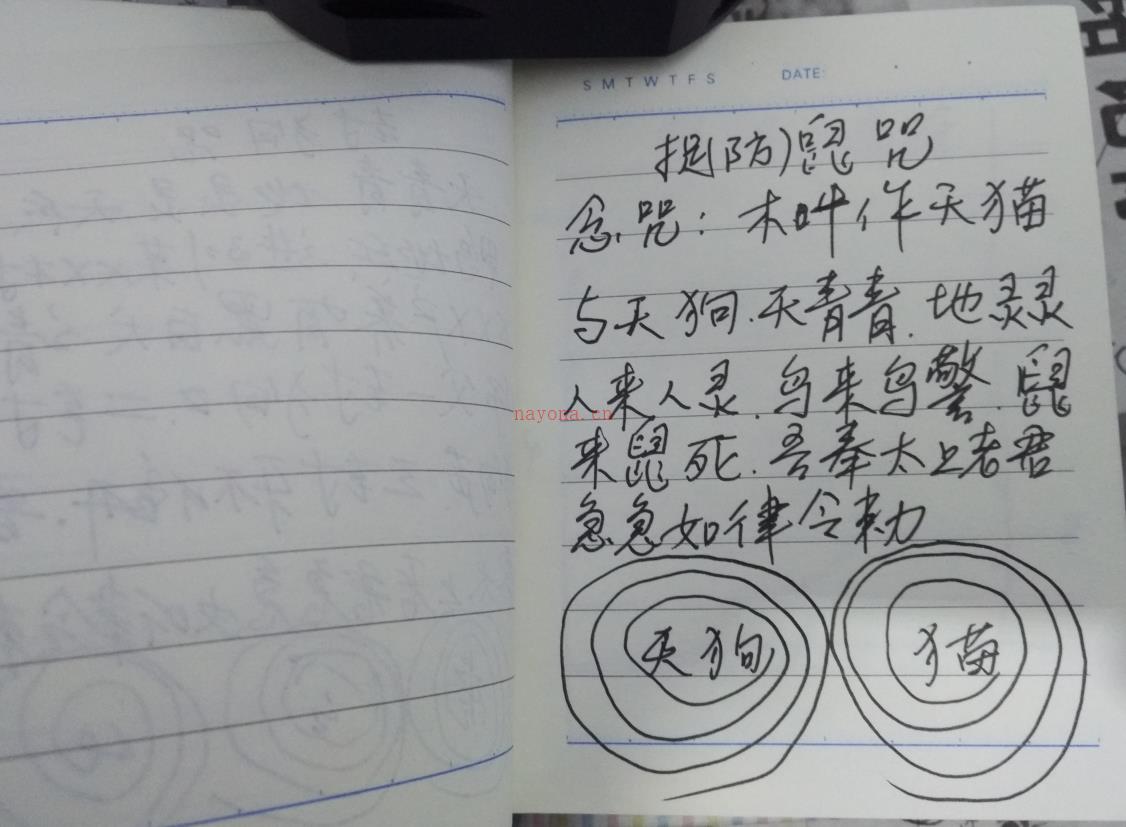 S M T W T F S DATE:
捉(防)鼠咒
念咒:木叶作天猫
与天狗.天青青.地灵灵
人来人灵.鸟来鸟警.鼠
来鼠死.吾奉太上老君
急急如律令勅
天狗
猫
nayona.cn